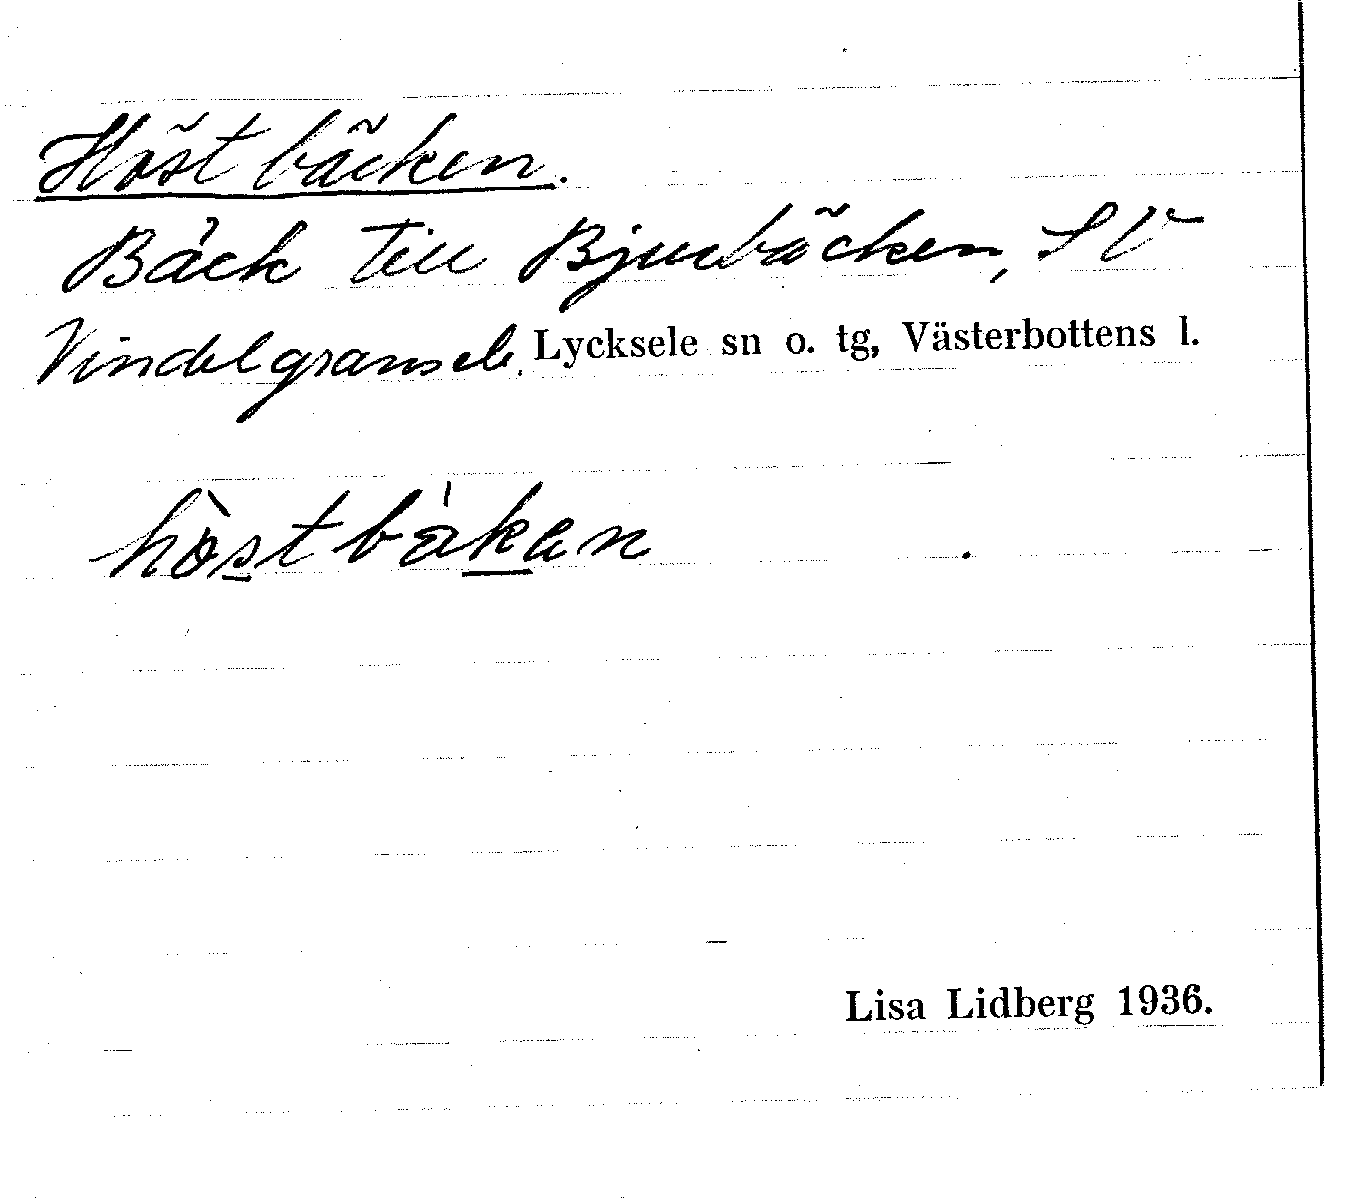 Höstbäcken.
Bäck till Bjurbäcken, SV
Vindelgransele. Lycksele sn o. tg, Västerbottens l.
hòstbàkan
Lisa Lidberg 1936.